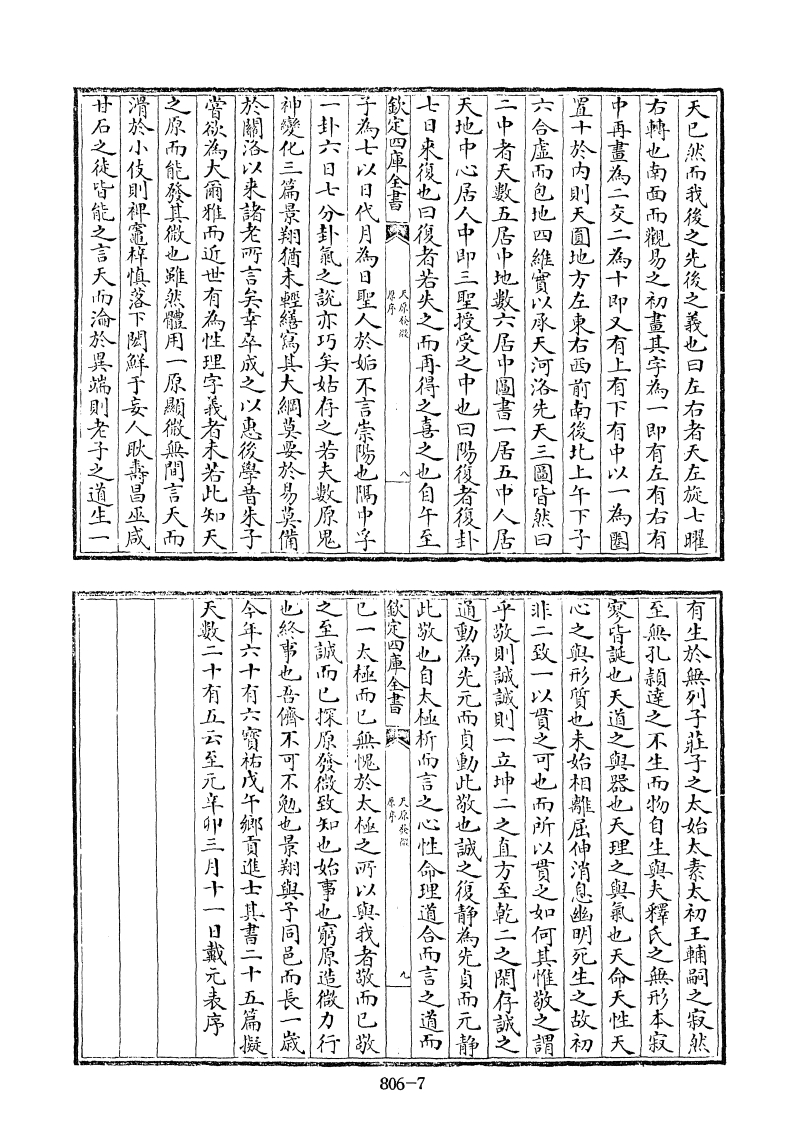 天已然而我後之先後之義也曰左右者天左旋七曜
右轉也南面而觀易之初畫其字為一即有左有右有
中再畫為二交二為十即又有上有下有中以一為圏
置十於内則天圓地方左東右西前南後北上午下子
六合虚而包地四維實以承天河洛先天三圖皆然曰
二中者天數五居中地數六居中圖書一居五中人居
天地中心居人中即三聖授受之中也曰陽復者復卦
七日來復也曰復者若失之而再得之喜之也自午至
欽定四庫全書
天原發微
原序
八
子為七以日代月為日聖人於姤不言崇陽也隔中孚
一卦六日七分卦氣之説亦巧矣姑存之若夫數原鬼
神變化三篇景翔猶未輕繕寫其大綱莫要於易莫備
於關洛以来諸老所言矣幸卒成之以惠後學昔朱子
嘗欲為大爾雅而近世有為性理字義者未若此知天
之原而能發其微也雖然體用一原顯微無間言天而
滑於小伎則裨竈梓慎落下閎鮮于妄人耿壽昌巫咸
甘石之徒皆能之言天而淪於異端則老子之道生一
有生於無列子莊子之太始太素太初王輔嗣之寂然
至無孔頴達之不生而物自生與夫釋氏之無形本寂
寥皆誕也天道之與器也天理之與氣也天命天性天
心之與形質也未始相離屈伸消息幽明死生之故初
非二致一以貫之可也而所以貫之如何其惟敬之謂
乎敬則誠誠則一立坤二之直方至乾二之閑存誠之
通動為先元而貞動此敬也誠之復静為先貞而元静
此敬也自太極析而言之心性命理道合而言之道而
欽定四庫全書
天原發微
原序
九
已一太極而已無愧於太極之所以與我者敬而已敬
之至誠而已探原發微致知也始事也窮原造微力行
也終事也吾儕不可不勉也景翔與予同邑而長一歳
今年六十有六寳祐戊午鄉貢進士其書二十五篇擬
天數二十有五云至元辛卯三月十一日戴元表序
806-7